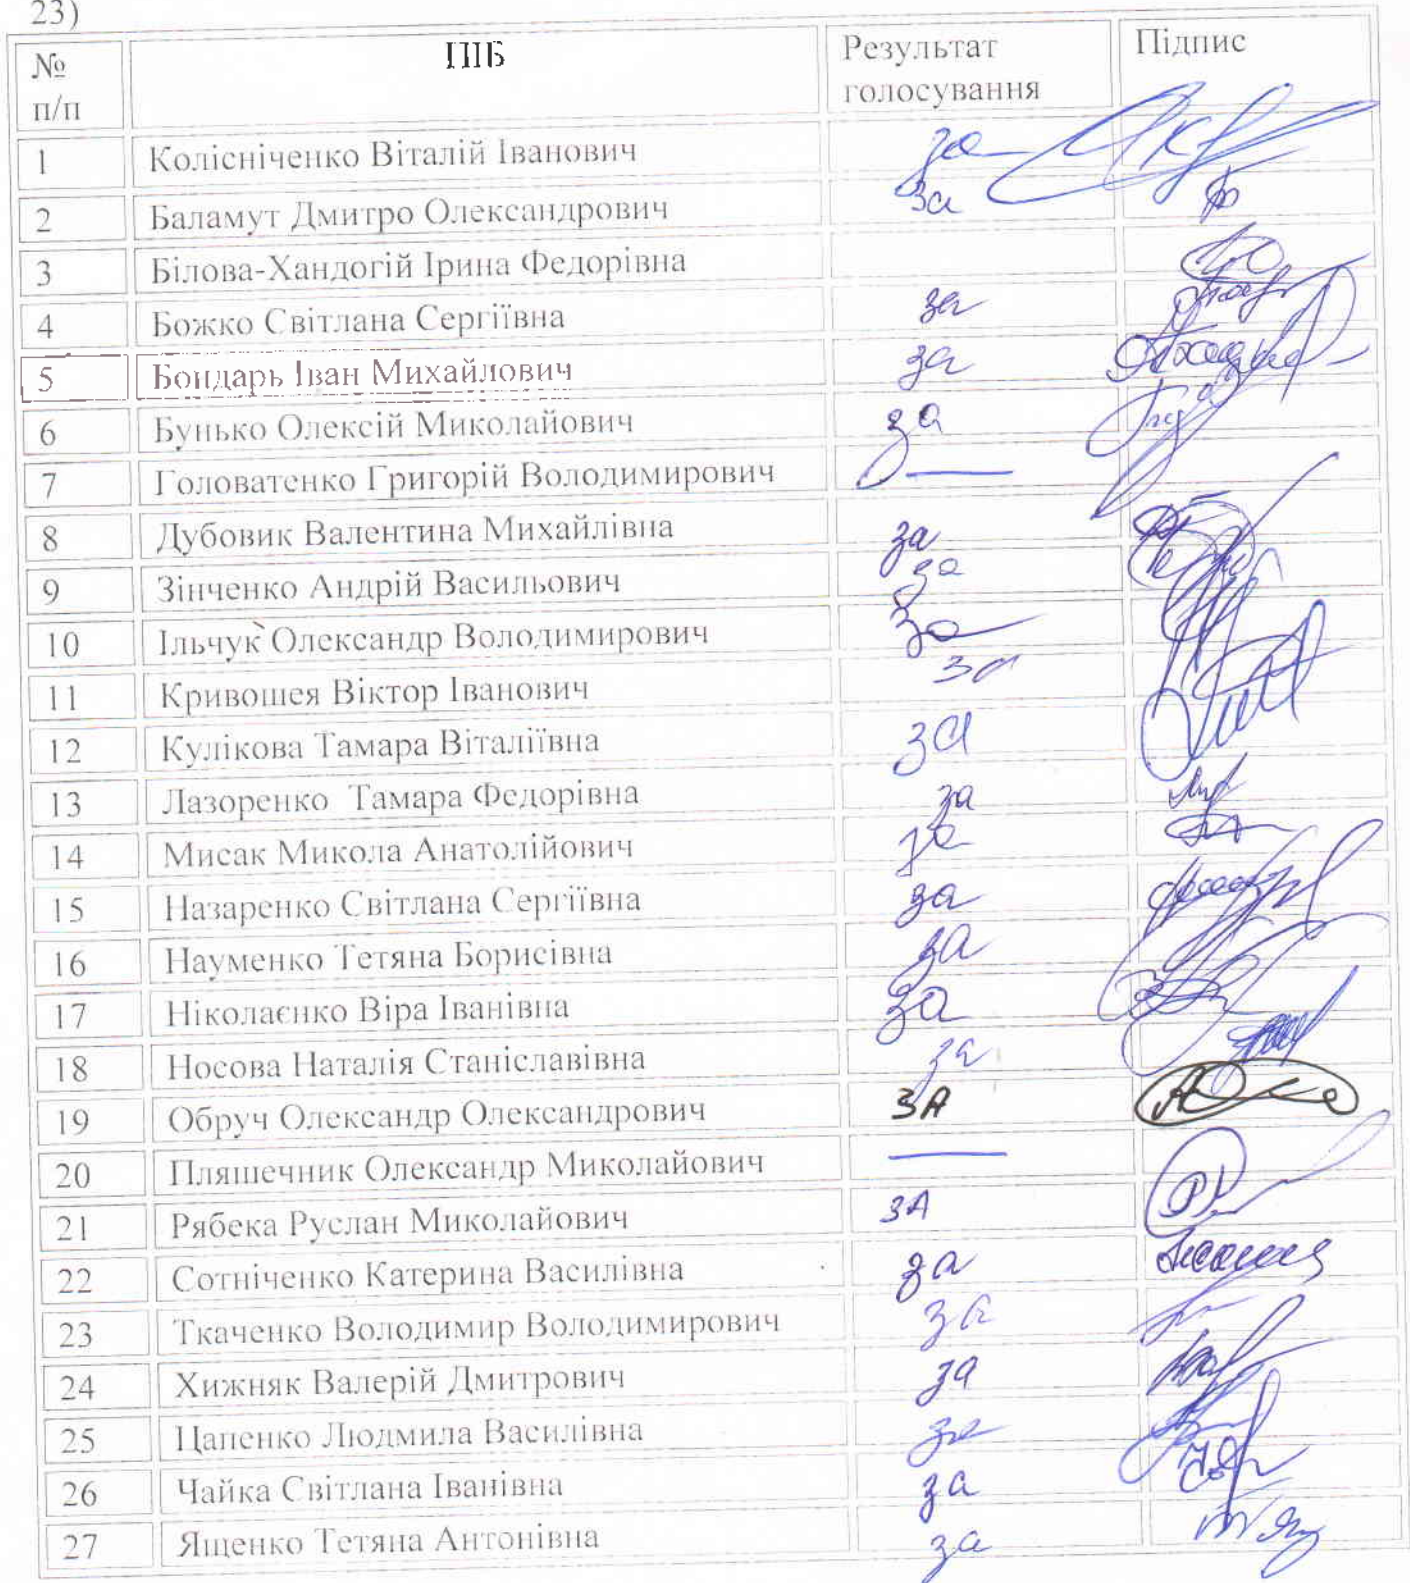 23)
№ п/п ПІБ Результат голосування Підпис
1 Колісніченко Віталій Іванович за
2 Баламут Дмитро Олександрович за
3 Білова-Хандогій Ірина Федорівна
4 Божко Світлана Сергіївна за
5 Бондарь Іван Михайлович за
6 Бунько Олексій Миколайович за
7 Головатенко Григорій Володимирович —
8 Дубовик Валентина Михайлівна за
9 Зінченко Андрій Васильович за
10 Ільчук Олександр Володимирович за
11 Кривошея Віктор Іванович за
12 Кулікова Тамара Віталіївна за
13 Лазоренко Тамара Федорівна за
14 Мисак Микола Анатолійович за
15 Назаренко Світлана Сергіївна за
16 Науменко Тетяна Борисівна за
17 Ніколаєнко Віра Іванівна за
18 Носова Наталія Станіславівна за
19 Обруч Олександр Олександрович ЗА
20 Пляшечник Олександр Миколайович —
21 Рябека Руслан Миколайович ЗА
22 Сотніченко Катерина Василівна за
23 Ткаченко Володимир Володимирович за
24 Хижняк Валерій Дмитрович за
25 Цапенко Людмила Василівна за
26 Чайка Світлана Іванівна за
27 Ященко Тетяна Антонівна за